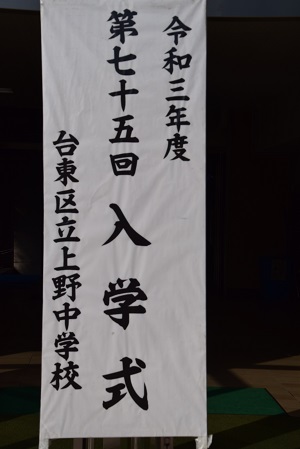 令和三年度
第七十五回 入学式
台東区立上野中学校